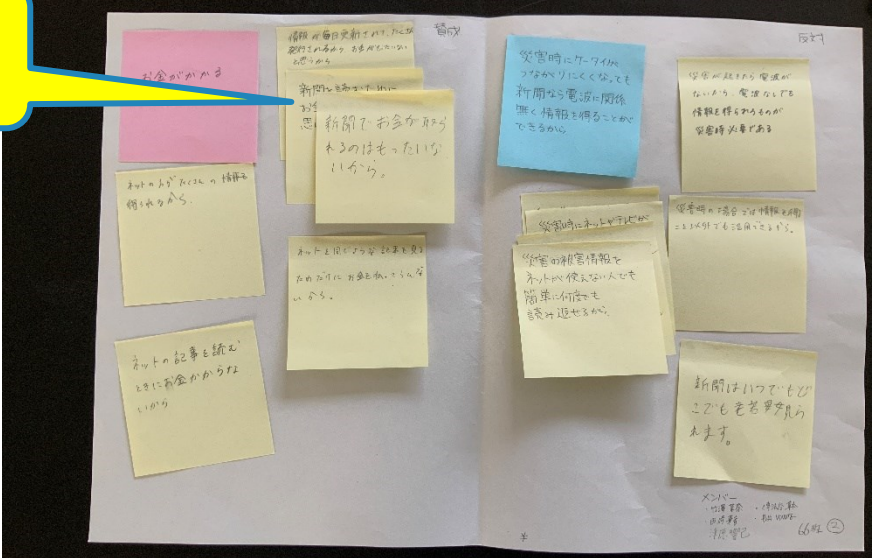 賛成
お金がかかる
情報が毎日更新されて、たくさん
発行されるから お金がもったいない
と思うから
新聞を
お金
思
新聞でお金が取ら
れるのはもったいな
いから。
ネットの方がたくさんの情報を
得られるから。
ネットと同じような記事を見る
ためだけにお金を払
いから。
ネットの記事を読む
ときにお金がかからな
いから
反対
災害時にケータイが
つながりにくくなっても
新聞なら電波に関係
無く情報を得ることが
できるから
災害が起きたら電波が
ないから、電波なしでも
情報を得られるものが
災害時必要である
災害時にネットやテレビが
災害の被害情報を
ネットが使えない人でも
簡単に何度でも
読み返せるから。
災害時の場合では情報を得る
こと以外でも活用できるから。
新聞はいつでもど
こでも老若男女見ら
れます。
メンバー
②